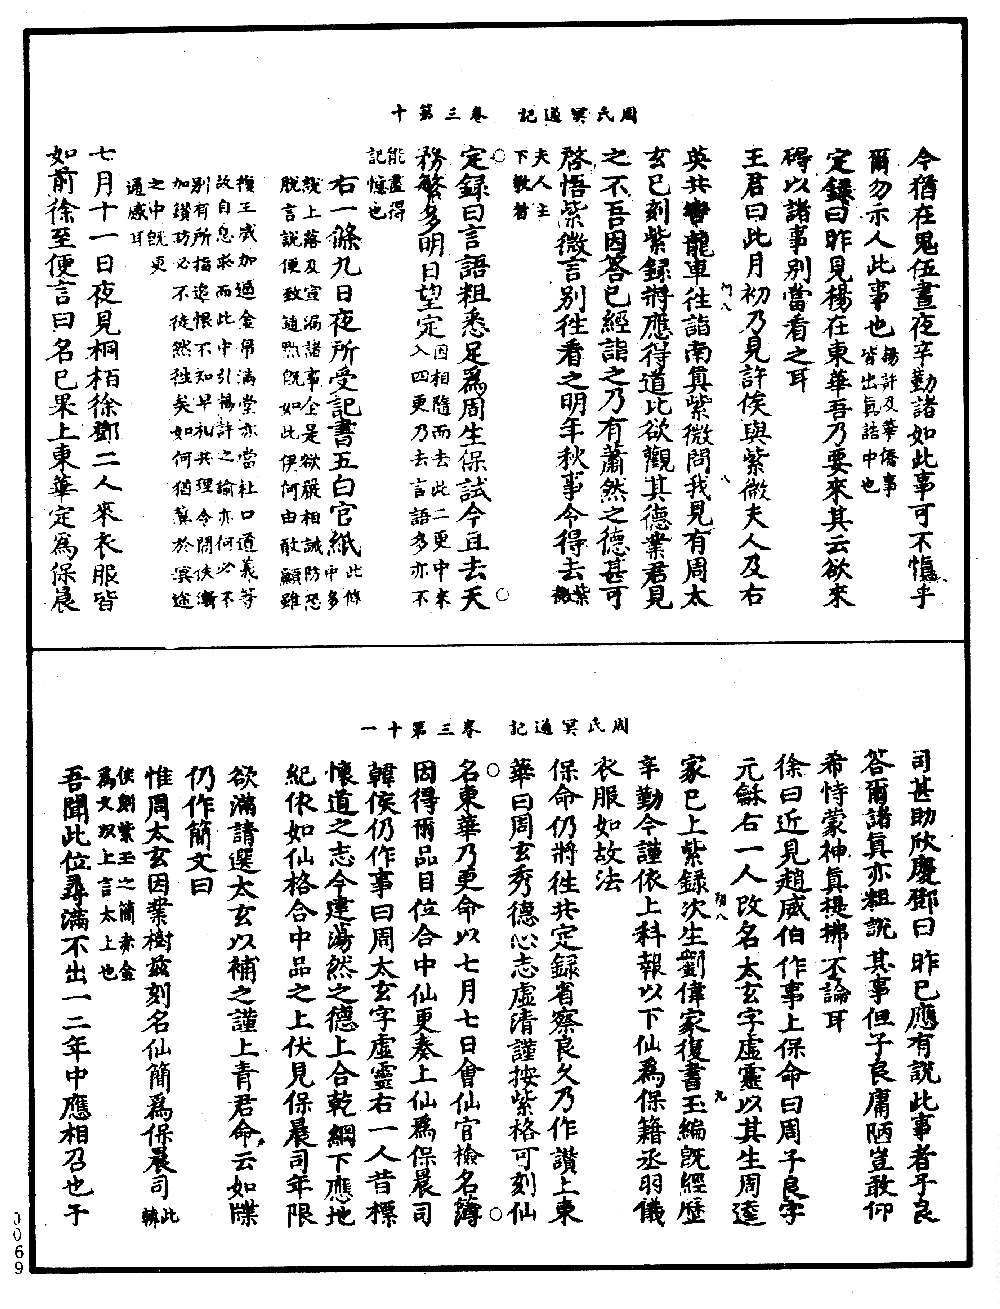 周氏冥通記　卷三第十
今猶在鬼伍晝夜辛勤諸如此事可不慎乎
爾勿示人此事也楊許及華僑事皆出氣誥中也
定錄曰昨見楊在東華吾乃要來其云欲來
碍以諸事別當看之耳
王君曰此月初乃見許侯與紫微夫人及右
英共乘龍車往詣南真紫微問我見有周太
玄已刻紫錄將應得道比欲觀其德業君見
之不吾因答已經詣之乃有蕭然之德甚可
啓悟紫微言別往看之明年秋事今得去紫微
夫人主下教者
定錄曰言語粗悉足為周生保試今且去天
務繁多明日望定因相隨而去此二更中來入四更乃去言語多亦不
能盡得記憶也
右一條九日夜所受記書五白官紙此條中多
說上落及宣漏諸事全是欲嚴相誡防恐
脫言說便致隨黜既如此便何由敢顯雖
復王威加逼金帛滿堂亦當杜口道義等
故自息求而此中引楊許之諭亦何必不
別有所指追恨不知早札共理令閉使漸
加鑽訪必不徒然往矣如何猶冀於冥途
之中既更
通感耳
七月十一日夜見桐栢徐鄧二人來衣服皆
如前徐至便言曰名已果上東華定為保晨
周氏冥通記　卷三第十一
司甚助欣慶鄧曰昨已應有說此事者子良
答爾諸真亦粗說其事但子良庸陋豈敢仰
希恃蒙神真提拂不論耳
徐曰近見趙威伯作事上保命曰周子良字
元龢右一人改名太玄字虛靈以其生周逵
家已上紫錄次生劉偉家復書玉編既經歷
辛勤今謹依上科報以下仙為保籍丞羽儀
衣服如故法
保命仍將往共定錄省察良久乃作讚上東
華曰周玄秀德心志虛清謹按紫格可刻仙
名東華乃更命以七月七日會仙官檢名簿
因得爾品目位合中仙更奏上仙為保晨司
韓侯仍作事曰周太玄字虛靈右一人昔標
懷道之志今建蕩然之德上合乾綱下應地
紀依如仙格合中品之上伏見保晨司年限
欲滿請選太玄以補之謹上青君命云如牒
仍作簡文曰
惟周太玄因業樹茲刻名仙簡為保晨司此韓
侯刻紫玉之簡赤金
為文奴上言太上也
吾聞此位尋滿不出一二年中應相召也子
0069